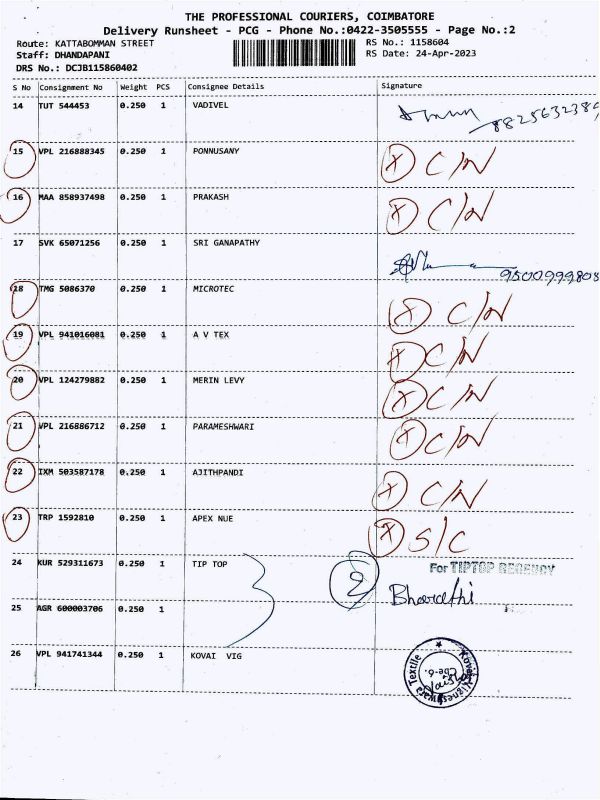 THE PROFESSIONAL COURIERS, COIMBATORE
Delivery Runsheet - PCG - Phone No.:0422-3505555 - Page No.:2
Route: KATTABOMMAN STREET RS No.: 1158604
Staff: DHANDAPANI RS Date: 24-Apr-2023
DRS No.: DCJB115860402
S No Consignment No Weight PCS Consignee Details Signature
14 TUT 544453 0.250 1 VADIVEL
15 VPL 216888345 0.250 1 PONNUSANY X C/N
16 MAA 858937498 0.250 1 PRAKASH X C/N
17 SVK 65071256 0.250 1 SRI GANAPATHY
9500999808
18 TMG 5086370 0.250 1 MICROTEC X C/N
19 VPL 941016081 0.250 1 A V TEX X C/N
20 VPL 124279882 0.250 1 MERIN LEVY X C/N
21 VPL 216886712 0.250 1 PARAMESHWARI X C/N
22 IXM 503587178 0.250 1 AJITHPANDI X C/N
23 TRP 1592810 0.250 1 APEX NUE X S/C
24 KUR 529311673 0.250 1 TIP TOP 2 For TIPTOP REGENCY
Bharathi
25 AGR 600003706 0.250 1
26 VPL 941741344 0.250 1 KOVAI VIG Kovai Vigneshwara Textile
Cbe-6.